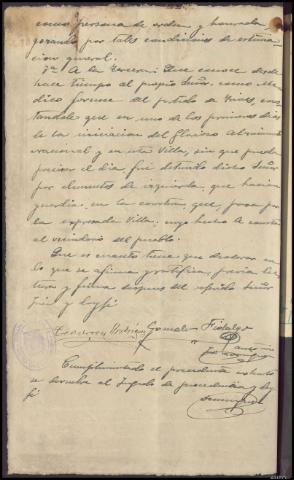 como persona de orden y honrada
gozando por tales condiciones de estima-
cion general.
A la tercera: Que conoce desde
hace tiempo al propio Señor, como Me-
dico forense del partido de cons-
tandole que en uno de los primeros dias
de la iniciacion del Glorioso Alzamiento
nacional y en esta Villa, sin que pueda
precisar el dia, fue detenido dicho Señor
por elementos de izquierda, que hacian
guardia en la carretera que pasa por
la expresada Villa, cuyo hecho le consta
al vecindario del pueblo.
Que es cuanto tiene que declarar en
lo que se afirma y ratifica, previa lec-
tura y firma despues del señor
Juez y doy fe
Gonzalo Fidalgo
Cumplimentado el precedente exhorto
se devuelve al Juzgado de procedencia y doy
fe